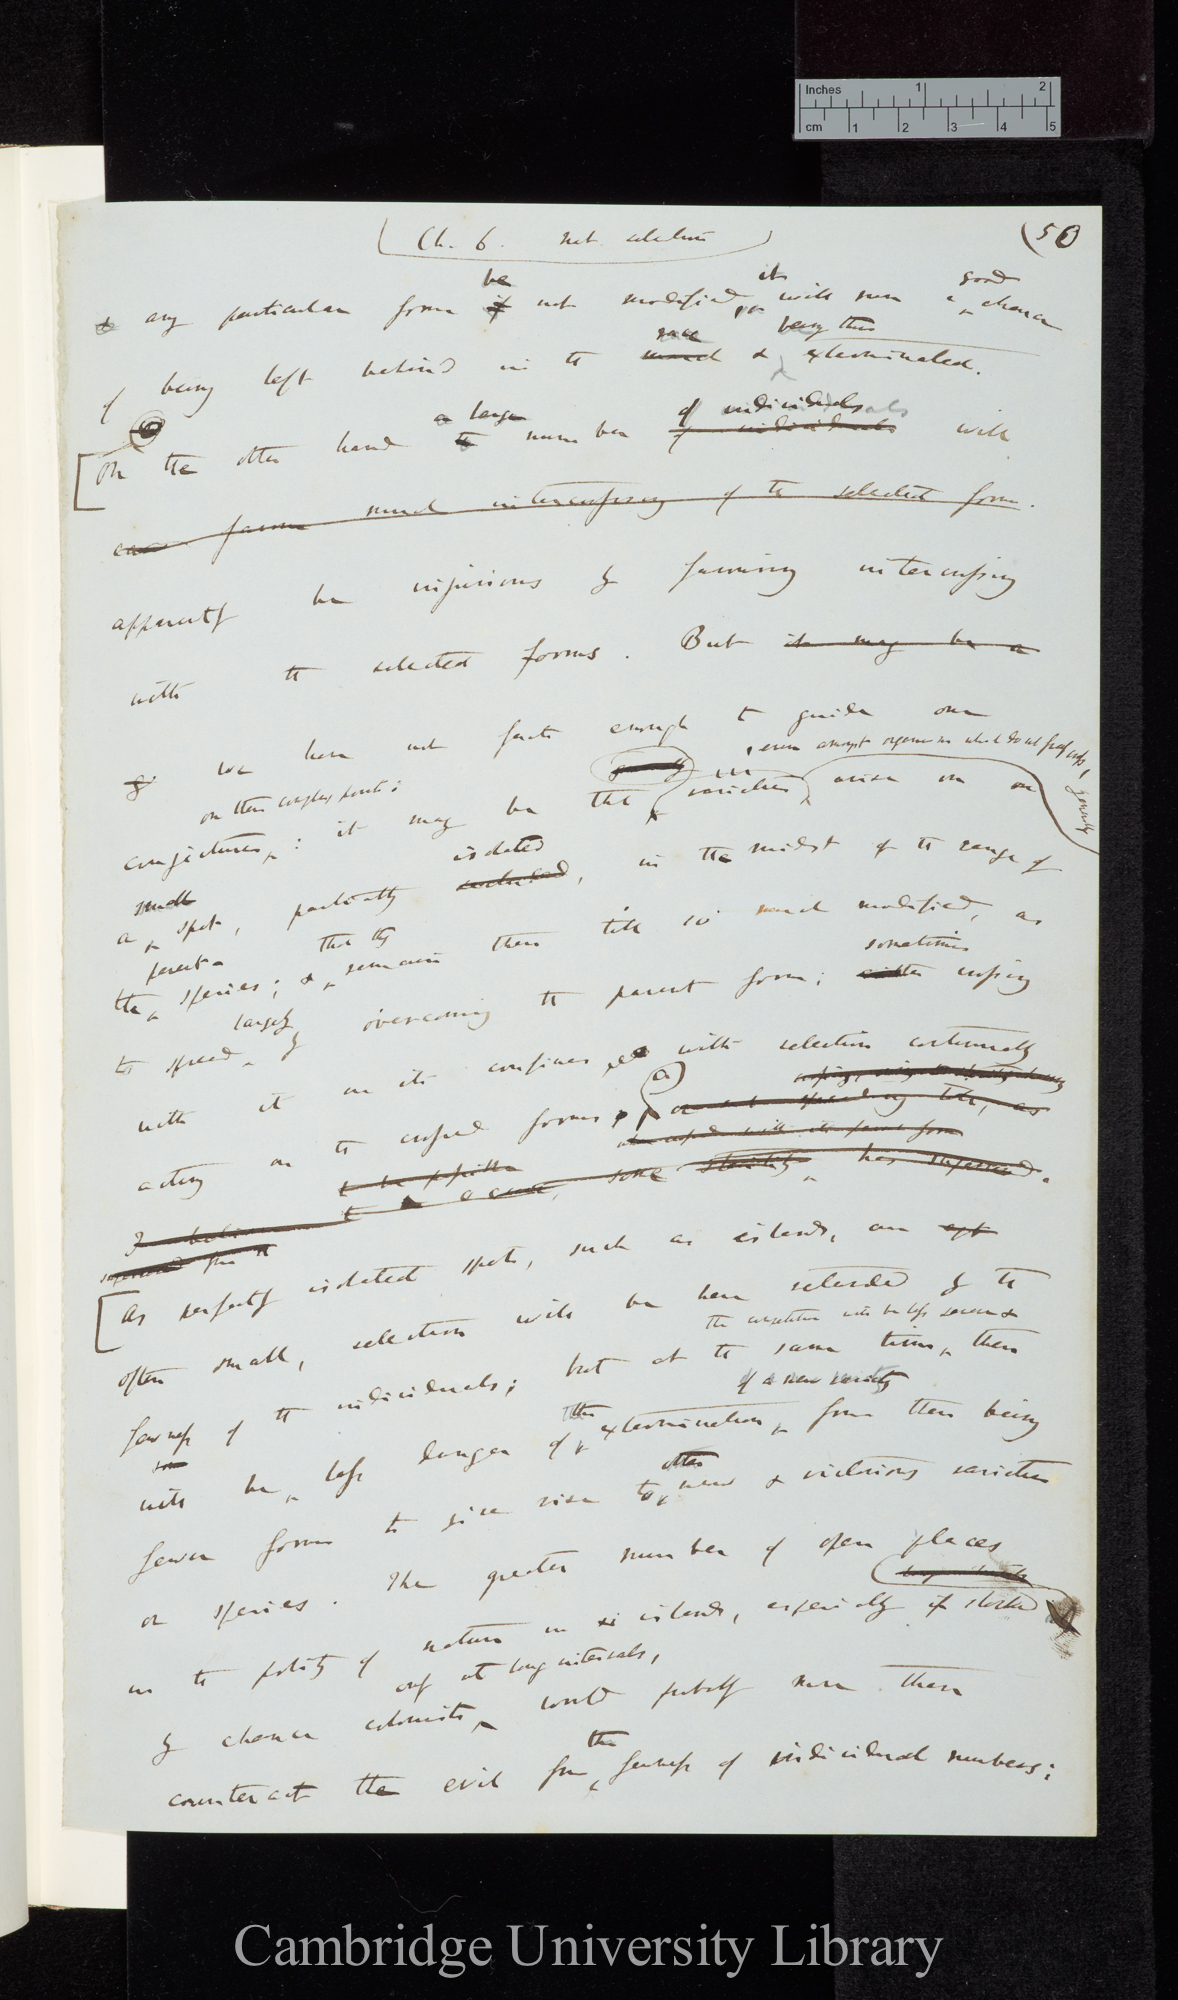 Inches 1 2
cm 1 2 3 4 5
Ch. 6. Nat. selection
(50
be it good
& any particular form if not modified, will run a chance
race being thus
of being left behind in the & exterminated.
a large of individuals
[On the other hand the number of individuals will
favour much intercrossing of the selected form.
apparently be injurious by favouring intercrossing
with the selected forms. But it may be a
we have not facts enough to guide our
, even amongst organisms which do not freely cross, generally
on these complex points;
conjectures: it may be that varieties arise in or on
small isolated
a spot, partially secluded, in the midst of the range of
parent- that they
the species; & remain there till so much modified, as
largely sometimes
to spread by overcoming the parent form; either crossing
with it on its confines, & with selection continually
(a)
acting on the crossed forms,
some sterility has supervened.
I believe
supervened from it
[As perfectly isolated spots, such as islands, are apt
often small, selection will be here retarded by the
the competition will be less severe &
fewness of the individuals; but at the same time, there
of a new variety
the
will be less danger of extermination, from there being
other
fewer forms to give rise to new & victorious varieties
or species. The greater number of open places
in the polity of nature in islands, especially if stocked
only at long intervals,
by chance colonists, would probably more than
the
counteract the evil from fewness of individual numbers;
Cambridge University Library